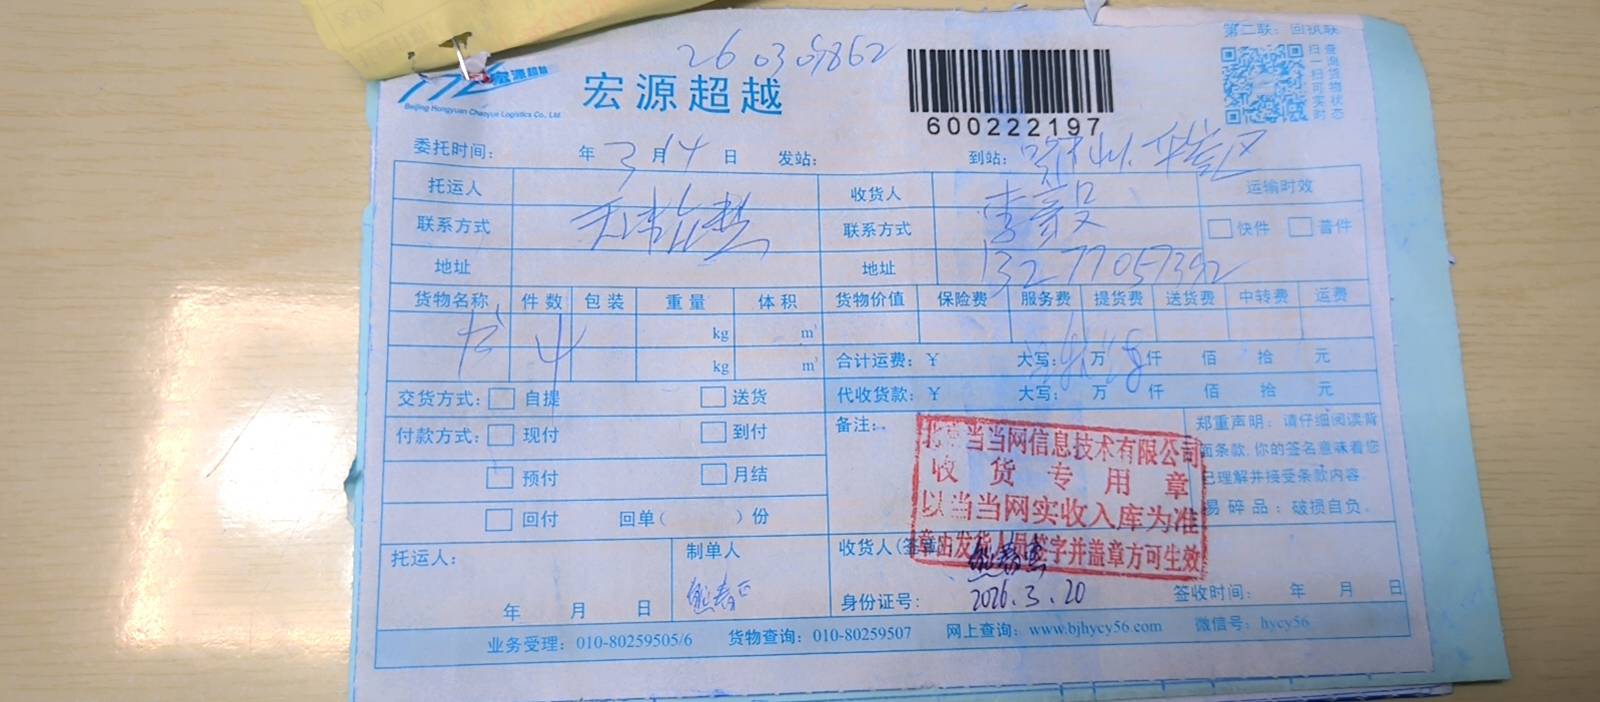 第二联：回执联
宏源超越
Beijing Hongyuan Chaoyue Logistics Co., Ltd
宏源超越
600222197
扫一扫可实时
查询货物状态
委托时间： 年 3 月 14 日 发站： 到站：
托运人 收货人 李毅 运输时效
联系方式 联系方式 快件 普件
地址 地址 13277057392
货物名称 件数 包装 重量 体积 货物价值 保险费 服务费 提货费 送货费 中转费 运费
书 4 kg m³
kg m³
合计运费：¥ 大写： 万 仟 佰 拾 元
交货方式： 自提 送货 代收货款：¥ 大写： 万 仟 佰 拾 元
付款方式： 现付 到付 备注：
预付 月结
回付 回单（ ）份
郑重声明：请仔细阅读背
面条款，你的签名意味着您
已理解并接受条款内容
易碎品：破损自负。
北京当当网信息技术有限公司
收货专用章
以当当网实收入库为准
字并盖章方可生效
托运人： 制单人 收货人(签章)
熊春
2026.3.20
年 月 日 身份证号： 签收时间： 年 月 日
业务受理：010-80259505/6 货物查询：010-80259507 网上查询：www.bjhycy56.com 微信号：hycy56